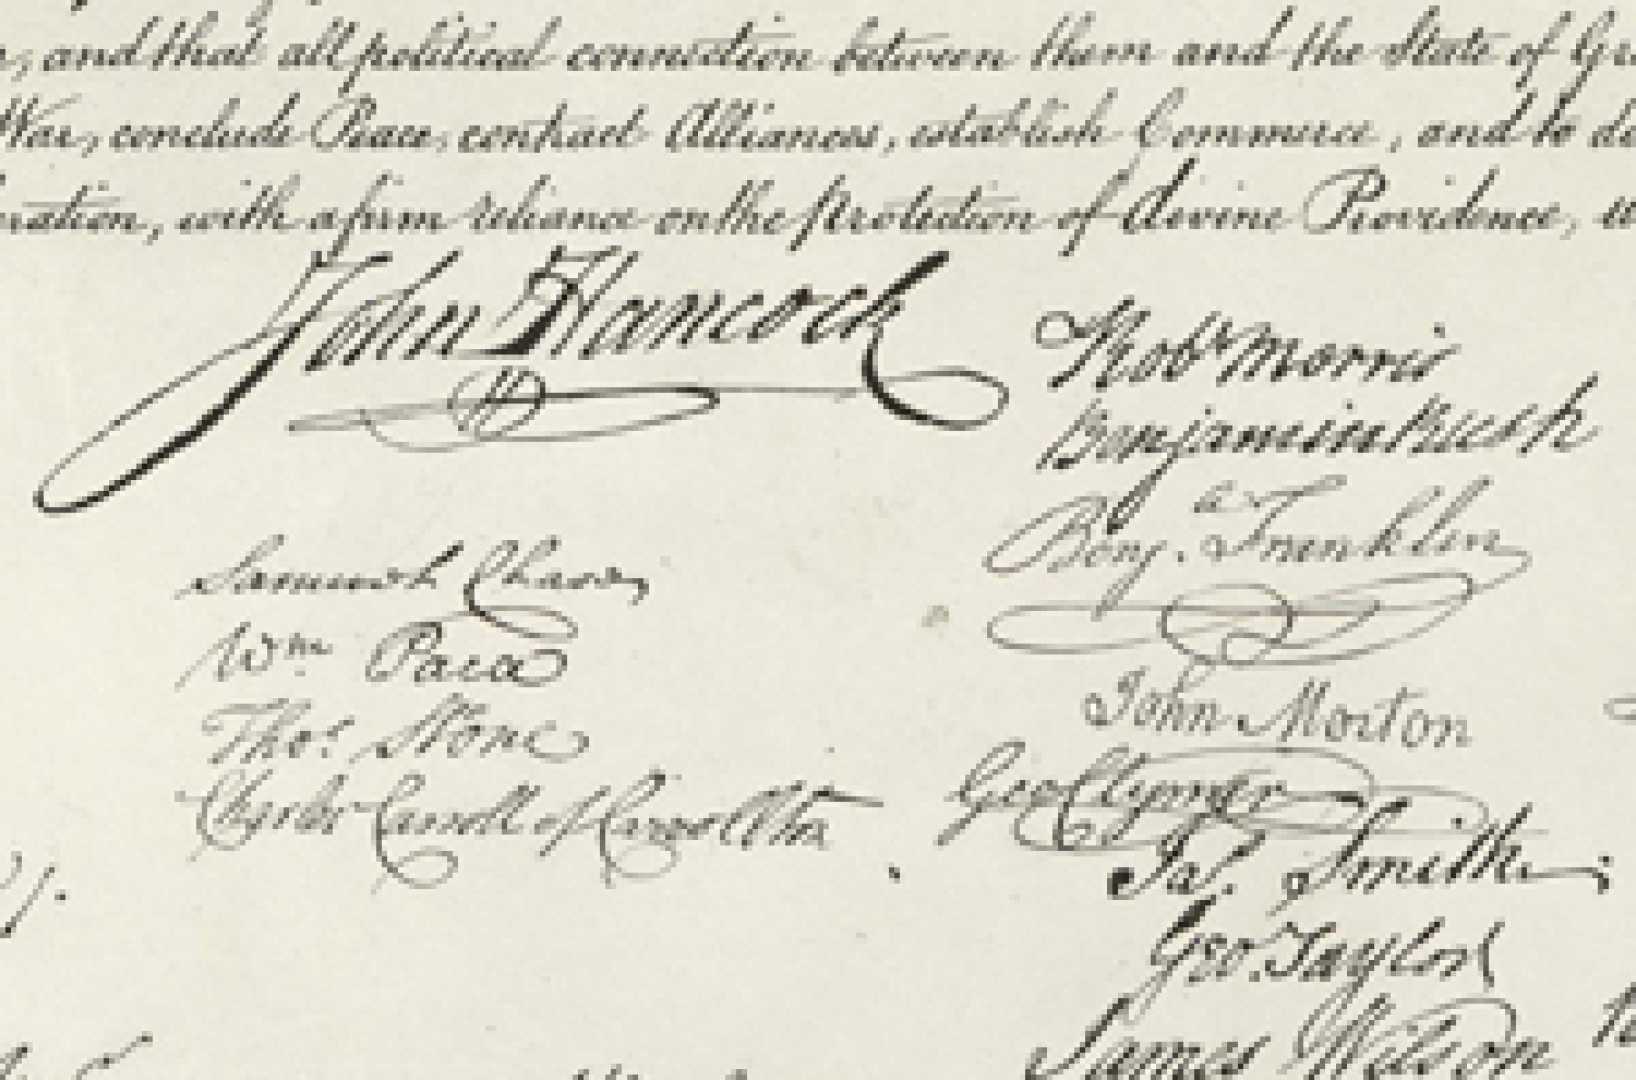 and that all political connection between them and the State of
War, conclude Peace, contract Alliances, establish Commerce, and to do
with a firm reliance on the protection of divine Providence,
John Hancock
Robt Morris
Benjamin Rush
Benja. Franklin
Samuel Chase
Wm. Paca
Thos. Stone
Charles Carroll of Carrollton
John Morton
Geo Clymer
Jas. Smith
Geo. Taylor
James Wilson